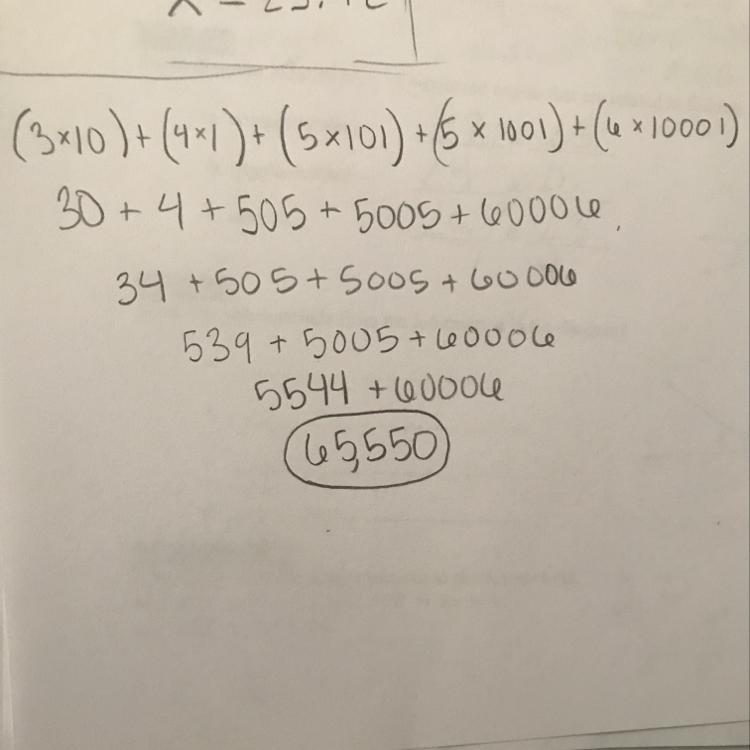 (3×10)+(4×1)+(5×101)+(5×1001)+(6×10001)
30+4+505+5005+60006.
34+505+5005+60006
539+5005+60006
5544+60006
65,550